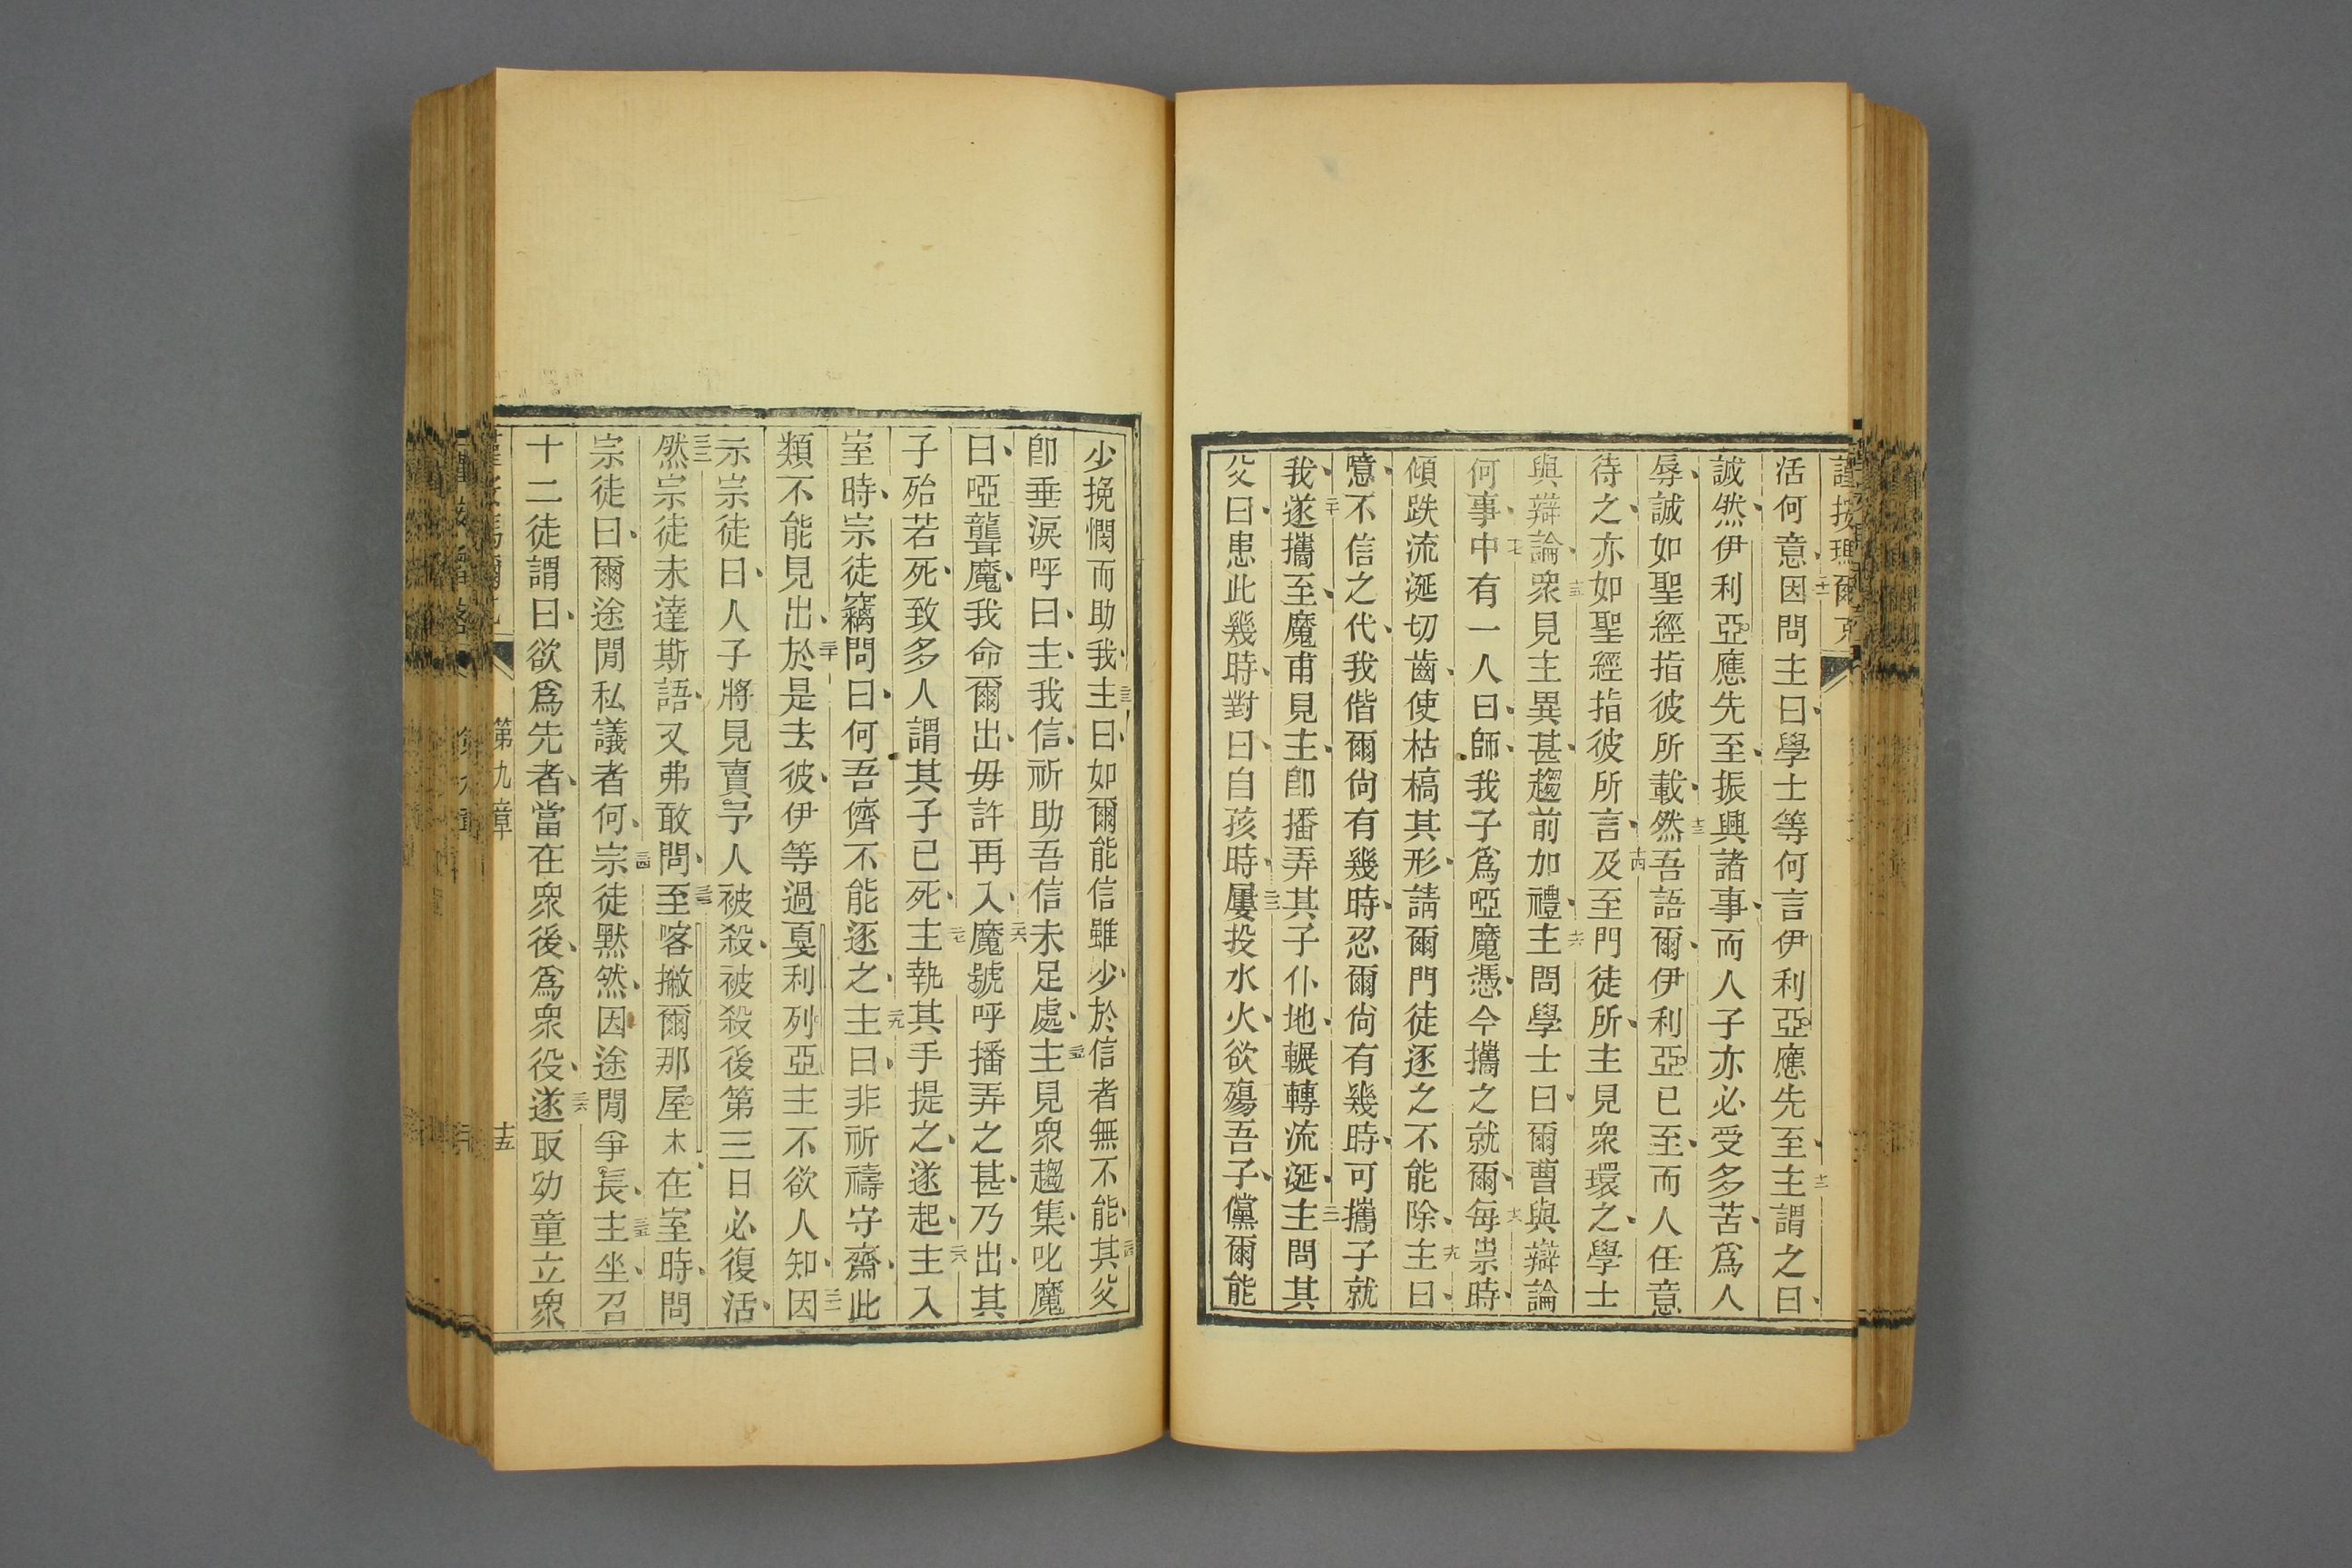 謹按瑪爾克
活何意十一因問主曰學士等何言伊利亞應先至十二主謂之曰
誠然伊利亞應先至振興諸事而人子亦必受多苦爲人
辱誠如聖經指彼所載十三然吾語爾伊利亞已至而人任意
待之亦如聖經指彼所言十四及至門徒所主見衆環之學士
與辯論十五衆見主異甚趨前加禮十六主問學士曰爾曹與辯論
何事十七中有一人曰師我子爲啞魔憑今攜之就爾十八每祟時
傾跌流涎切齒使枯槁其形請爾門徒逐之不能除十九主曰
噫不信之代我偕爾尙有幾時忍爾尙有幾時可攜子就
我二十遂攜至魔甫見主卽播弄其子仆地輾轉流涎二一主問其
父曰患此幾時對曰自孩時二二屢投水火欲殤吾子儻爾能
少挽憫而助我二三主曰如爾能信雖少於信者無不能二四其父
卽垂淚呼曰主我信祈助吾信未足處二五主見衆趨集叱魔
曰啞聾魔我命爾出毋許再入二六魔號呼播弄之甚乃出其
子殆若死致多人謂其子已死二七主執其手提之遂起二八主入
室時宗徒竊問曰何吾儕不能逐之二九主曰非祈禱守齋此
類不能見出三十於是去彼伊等過戛利列亞主不欲人知三一因
示宗徒曰人子將見賣予人被殺被殺後第三日必復活
三二然宗徒未達斯語又弗敢問三三至喀撇爾那屋木在室時問
宗徒曰爾途閒私議者何三四宗徒默然因途閒爭長三五主坐召
十二徒謂曰欲爲先者當在衆後爲衆役三六遂取幼童立衆
第九章 十五